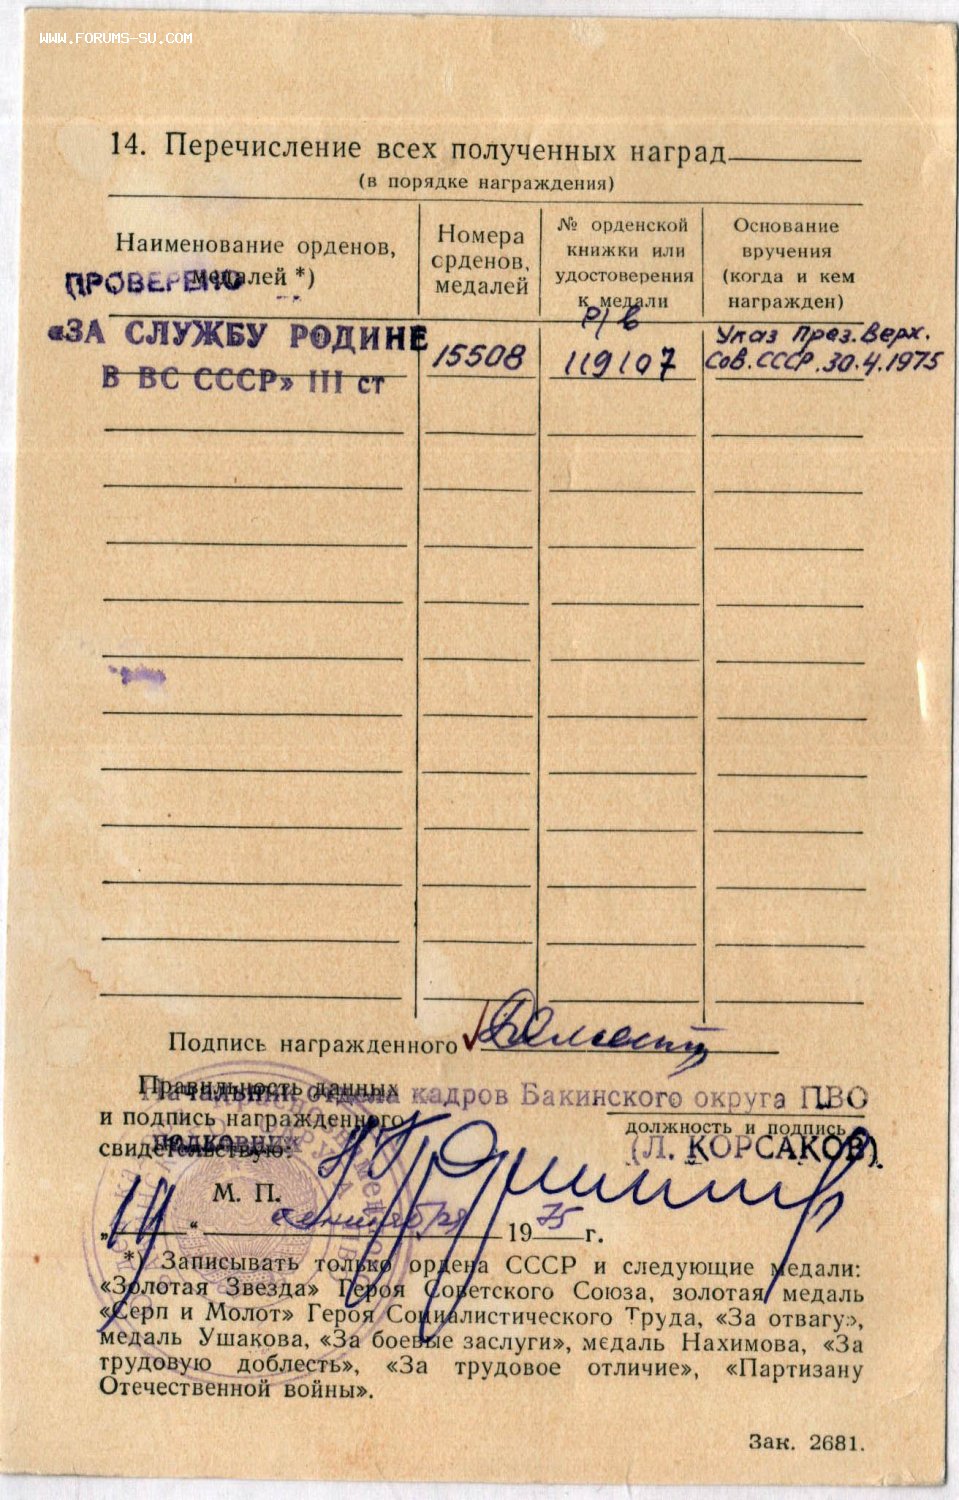 WWW.FORUMS-SU.COM
14. Перечисление всех полученных наград
(в порядке награждения)
Наименование орденов,
медалей *)
Номера
орденов,
медалей
№ орденской
книжки или
удостоверения
к медали
Основание
вручения
(когда и кем
награжден)
ПРОВЕРЕНО
«ЗА СЛУЖБУ РОДИНЕ
В ВС СССР» III ст
15508
119107
Указ През. Верх.
Сов. СССР. 30.4.1975
Подпись награжденного
Правильность данных
Начальник отдела кадров Бакинского округа ПВО
и подпись награжденного
должность и подпись
полковник
свидетельствую:
(Л. КОРСАКОВ).
М. П.
сентября 1975 г.
*) Записывать только ордена СССР и следующие медали:
«Золотая Звезда» Героя Советского Союза, золотая медаль
«Серп и Молот» Героя Социалистического Труда, «За отвагу»,
медаль Ушакова, «За боевые заслуги», медаль Нахимова, «За
трудовую доблесть», «За трудовое отличие», «Партизану
Отечественной войны».
Зак. 2681.